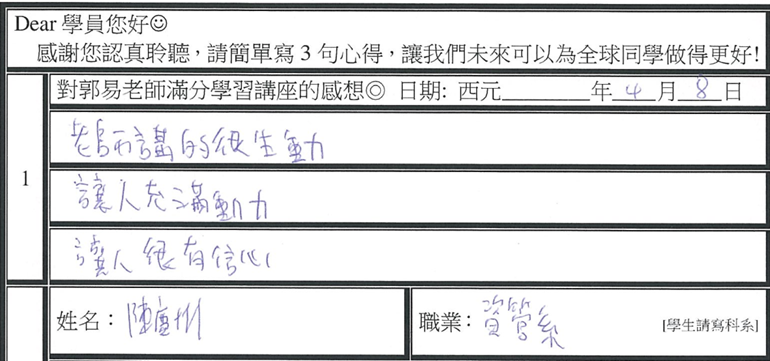 Dear 學員您好☺
感謝您認真聆聽，請簡單寫 3 句心得，讓我們未來可以為全球同學做得更好!
1
對郭易老師滿分學習講座的感想◎ 日期: 西元________年 4 月 8 日
老師講的很生動
讓人充滿動力
讓人很有信心
姓名：陳
職業：資管系 [學生請寫科系]